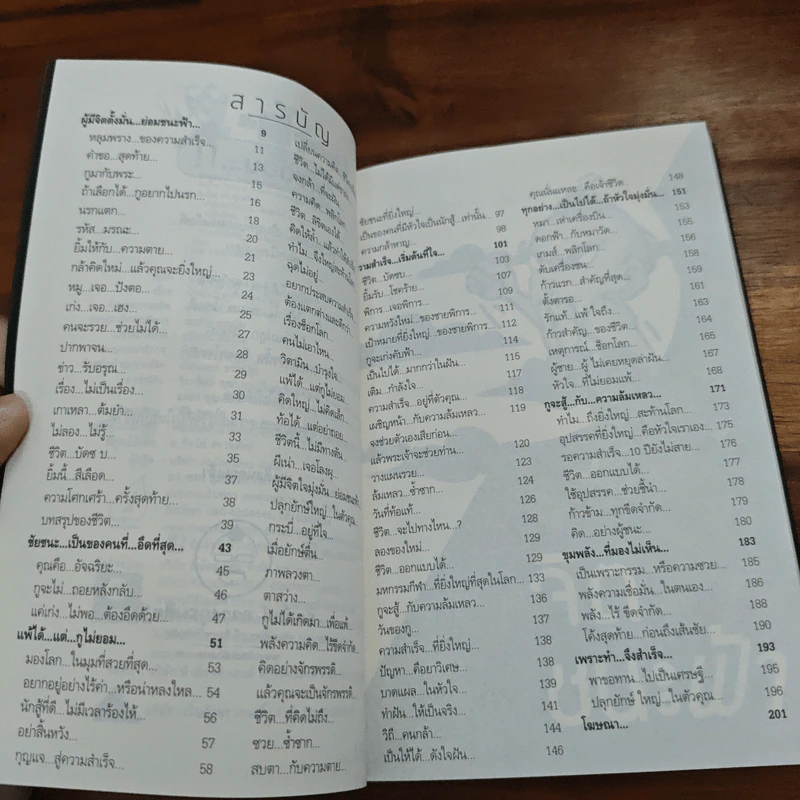 สารบัญ
ผู้มีจิตตั้งมั่น...ย่อมชนะฟ้า... 9
หลุมพราง...ของความสำเร็จ... 11
คำขอ...สุดท้าย... 13
กูมากับพระ... 15
ถ้าเลือกได้...กูอยากไปนรก... 16
นรกแตก... 18
รหัส...มรณะ... 20
ยิ้มให้กับ...ความตาย... 21
กล้าคิดใหม่...แล้วคุณจะยิ่งใหญ่... 23
หมู...เจอ...ปังตอ... 24
เก่ง...เจอ...เฮง... 25
คนจะรวย...ช่วยไม่ได้... 27
ปากพาจน... 28
ข่าว...รับอรุณ... 29
เรื่อง...ไม่เป็นเรื่อง... 30
เกาเหลา...ต้มยำ... 31
ไม่ลอง...ไม่รู้... 33
ชีวิต...บัดซ บ... 35
ยิ้มนี้...สีเลือด... 37
ความโศกเศร้า...ครั้งสุดท้าย... 38
บทสรุปของชีวิต... 39
ชัยชนะ...เป็นของคนที่...อึดที่สุด... 43
คุณคือ...อัจฉริยะ... 45
กูจะไม่...ถอยหลังกลับ... 46
แค่เก่ง...ไม่พอ...ต้องอึดด้วย... 47
แพ้ได้...แต่...กูไม่ยอม... 51
มองโลก...ในมุมที่สวยที่สุด... 53
อยากอยู่อย่างไร้ค่า...หรือน่าหลงใหล... 54
นักสู้ที่ดี...ไม่มีเวลาร้องไห้... 56
อย่าสิ้นหวัง... 57
กุญแจ...สู่ความสำเร็จ... 58
เปลี่ยนความคิด
ชีวิต...ไม่ได้มี
จงกล้า...ที่จะฝัน
ความคิด...พลิกโลก
ชีวิต...ลิขิตเองได้
คิดให้ล้ำ...แล้ว
ทำไม...จึง
ฉุดไม่อยู่
อยากประสบความสำเร็จ
ต้องแตกต่างและดีกว่า
เรื่องช็อกโลก
คนไม่เอาไหน
วิตามิน...บำรุงใจ
แพ้ได้...แต่กูไม่ยอม
คิดใหญ่...ไม่คิดเล็ก
ท้อได้...แต่อย่าถอย
ชีวิตนี้...ไม่มีทางตัน
ผีเน่า...เจอโลงผุ
ผู้มีจิตใจมุ่งมั่น...ย่อมชนะ
ปลุกยักษ์ใหญ่...ในตัวคุณ
กระบี่...อยู่ที่ใจ
เมื่อยักษ์ตื่น...
ภาพลวงตา...
ตาสว่าง...
กูไม่ได้เกิดมา...เพื่อแพ้...
พลังความคิด...ไร้ขีดจำกัด...
คิดอย่างจักรพรรดิ...
แล้วคุณจะเป็นจักรพรรดิ...
ชีวิต...ที่คิดไม่ถึง...
ซวย...ซ้ำซาก...
สบตา...กับความตาย...
ชัยชนะที่ยิ่งใหญ่...
เป็นของคนที่มีหัวใจเป็นนักสู้...เท่านั้น... 97
ความกล้าหาญ... 98
วามสำเร็จ...เริ่มต้นที่ใจ... 101
ชีวิต...บัดซบ... 103
ยิ้มรับ...โชคร้าย... 107
พิการ...เจอพิการ... 109
ความหวังใหม่...ของชายพิการ... 111
เป้าหมายที่ยิ่งใหญ่...ของชายพิการ... 112
กูจะเก่งคับฟ้า... 114
เป็นไปได้...มากกว่าในฝัน... 115
เติม...กำลังใจ... 117
ความสำเร็จ...อยู่ที่ตัวคุณ... 118
เผชิญหน้า...กับความล้มเหลว... 119
จงช่วยตัวเองเสียก่อน...
แล้วพระเจ้าจะช่วยท่าน... 120
วางแผนรวย... 123
ล้มเหลว...ซ้ำซาก... 124
วันที่ท้อแท้... 126
ชีวิต...จะไปทางไหน...? 128
ลองของใหม่... 129
ชีวิต...ออกแบบได้... 129
มหกรรมกีฬา...ที่ยิ่งใหญ่ที่สุดในโลก... 133
กูจะสู้...กับความล้มเหลว... 136
วันของกู... 137
ความสำเร็จ...ที่ยิ่งใหญ่... 138
ปัญหา...คือยาวิเศษ... 138
บาดแผล...ในหัวใจ... 139
ทำฝัน...ให้เป็นจริง... 141
วิถี...คนกล้า... 144
เป็นให้ได้...ดังใจฝัน... 146
คุณนั่นแหละ...คือเจ้าชีวิต... 148
ทุกอย่าง...เป็นไปได้...ถ้าหัวใจมุ่งมั่น... 151
หมา...เห่าเครื่องบิน... 153
ดอกฟ้า...กับหมาวัด... 155
เกมส์...พลิกโลก... 156
ดับเครื่องชน... 158
ก้าวแรก...สำคัญที่สุด... 159
ตั้งตารอ... 161
รักแท้...แพ้ ใจถึง... 163
ก้าวสำคัญ...ของชีวิต... 164
เหตุการณ์...ช็อกโลก... 165
ผู้ชาย...ผู้ ไม่เคยหยุดล่าฝัน... 167
หัวใจ...ที่ไม่ยอมแพ้... 168
กูจะสู้...กับ...ความล้มเหลว... 171
ทำไม...ถึงยิ่งใหญ่...สะท้านโลก... 173
อุปสรรคที่ยิ่งใหญ่...คือหัวใจเราเอง... 175
รอความสำเร็จ...10 ปียังไม่สาย... 176
ชีวิต...ออกแบบได้... 177
ใช้อุปสรรค...ช่วยชี้นำ... 178
ก้าวข้าม...ทุกขีดจำกัด... 179
คิด...อย่างผู้ชนะ... 180
ขุมพลัง...ที่มองไม่เห็น... 183
เป็นเพราะกรรม...หรือความซวย... 185
พลังความเชื่อมั่น...ในตนเอง... 186
พลัง...ไร้ ขีดจำกัด... 188
โค้งสุดท้าย...ก่อนถึงเส้นชัย... 190
เพราะทำ...จึงสำเร็จ... 193
พาขอทาน...ไปเป็นเศรษฐี... 195
ปลุกยักษ์ ใหญ่...ในตัวคุณ... 196
โฆษณา... 201